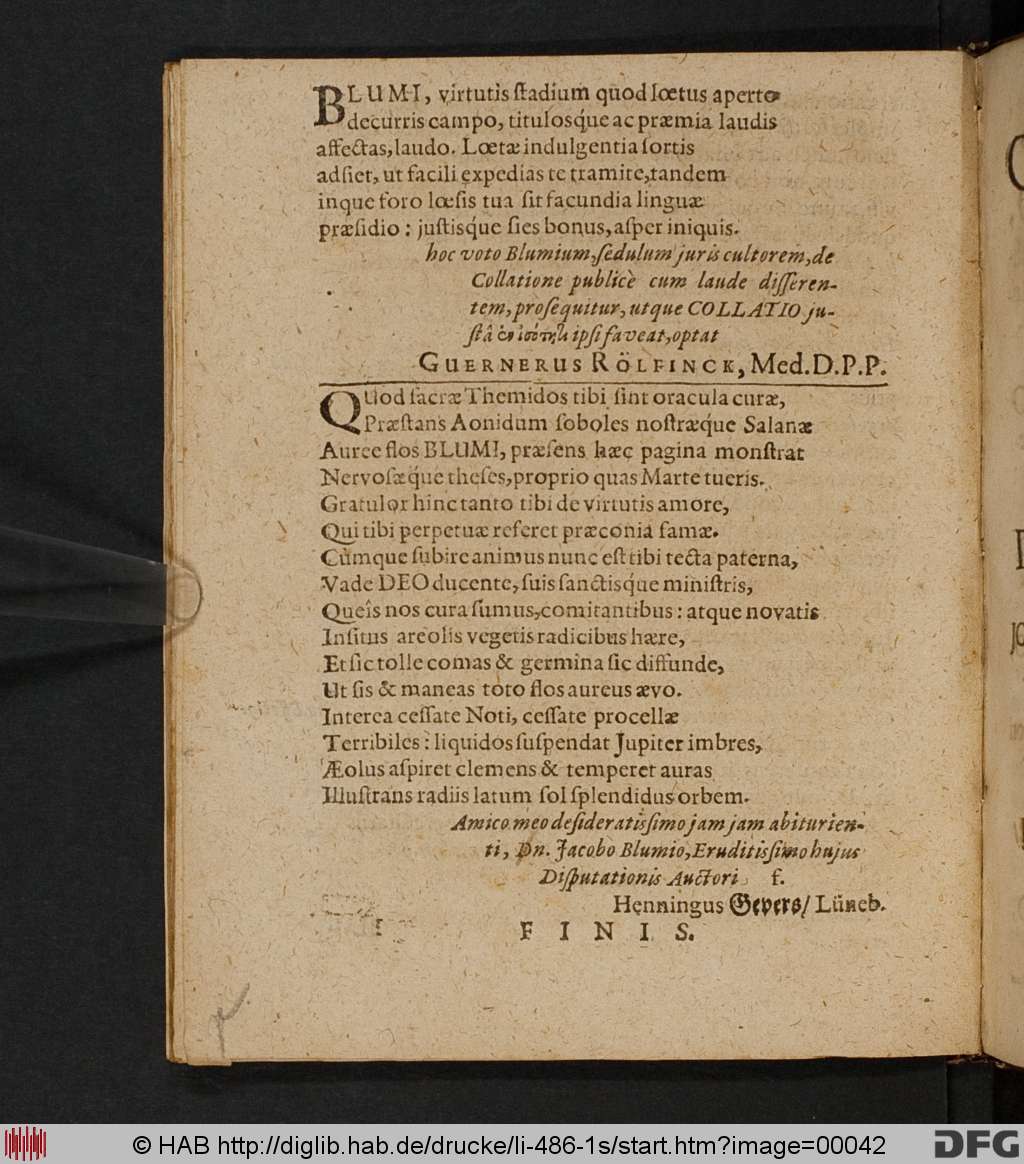 BLUMI, virtutis ſtadium quod lœtus aperto
decurris campo, titulosq́ue ac præmia laudis
affectas, laudo. Lœtæ indulgentia ſortis
adſiet, ut facili expedias te tramite, tandem
inque foro lœſis tua ſit facundia linguæ
præſidio: juſtisq́ue ſies bonus, aſper iniquis.
hoc voto Blumium, ſedulum juris cultorem, de
Collatione publicè cum laude differen-
tem, proſequitur, utque COLLATIO ju-
ſtâ ἐν ἰσότητι ipſi faveat, optat
GUERNERUS RÖLFINCK, Med. D. P. P.
QUod ſacræ Themidos tibi ſint oracula curæ,
Præſtans Aonidum ſoboles noſtræque Salanæ
Auree flos BLUMI, præſens hæc pagina monſtrat
Nervoſæq́ue theſes, proprio quas Marte tueris.
Gratulor hinc tanto tibi de virtutis amore,
Qui tibi perpetuæ referet præconia famæ.
Cùmque ſubire animus nunc eſt tibi tecta paterna,
Vade DEO ducente, ſuis ſanctisq́ue miniſtris,
Queîs nos cura ſumus, comitantibus: atque novatis
Inſitus areolis vegetis radicibus hære,
Et ſic tolle comas & germina ſic diffunde,
Ut ſis & maneas toto flos aureus ævo.
Interea ceſſate Noti, ceſſate procellæ
Terribiles: liquidos ſuſpendat Jupiter imbres,
Æolus aſpiret clemens & temperet auras
Illuſtrans radiis latum ſol ſplendidus orbem.
Amico meo deſideratiſſimo jam jam abiturien-
ti, Dn. Jacobo Blumio, Eruditiſſimo hujus
Diſputationis Auctori f.
Henningus Gevers/ Lüneb.
FINIS.
© HAB http://diglib.hab.de/drucke/li-486-1s/start.htm?image=00042
DFG